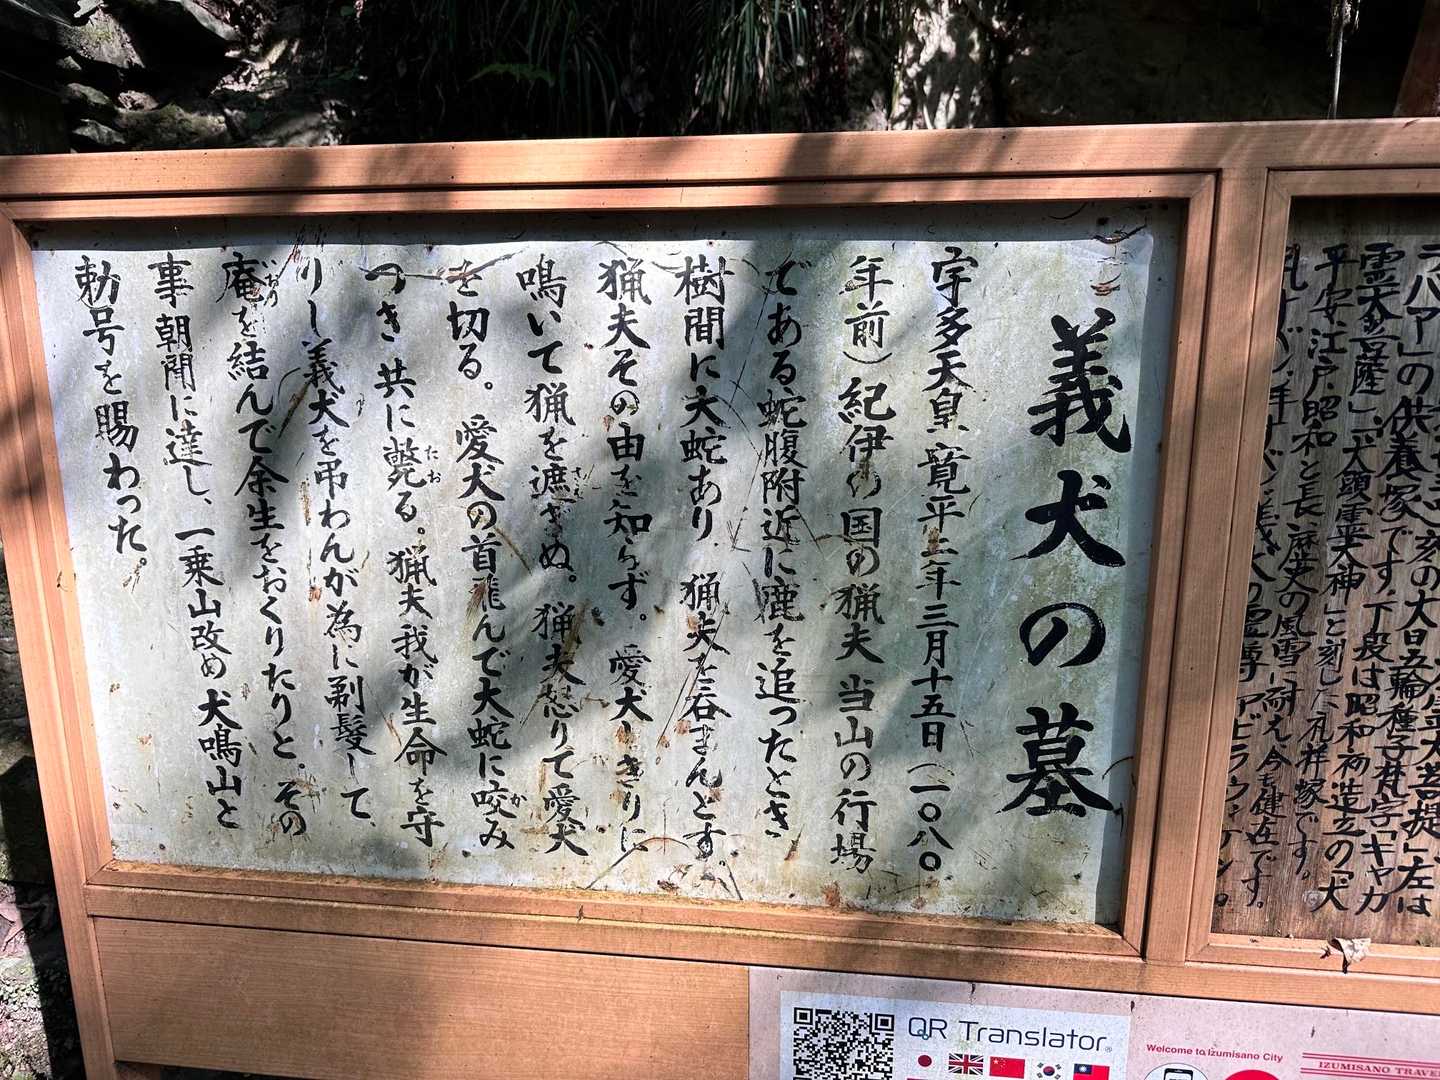 義犬の墓
宇多天皇寛平二年三月十五日(一〇八〇
年前)紀伊の国の猟夫 当山の行場
である蛇腹附近に鹿を追ったとき
樹間に大蛇あり 猟夫を呑まんとす。
猟夫その由を知らず。愛犬しきりに
鳴いて猟を遮ぎぬ。猟夫怒りて愛犬
を切る。愛犬の首飛んで大蛇に咬み
つき 共に斃る。猟夫我が生命を守
りし義犬を弔わんが為に剃髪して、
庵を結んで余生をおくりたりと。その
事朝聞に達し、一乗山改め犬鳴山と
勅号を賜わった。
の供養塚です。下段は昭和初造立の「犬
平安、江戸、昭和と長い歴史の風雪に耐え今も健在です。
QR Translator
Welcome to Izumisano City
IZUMISANO TRAVE